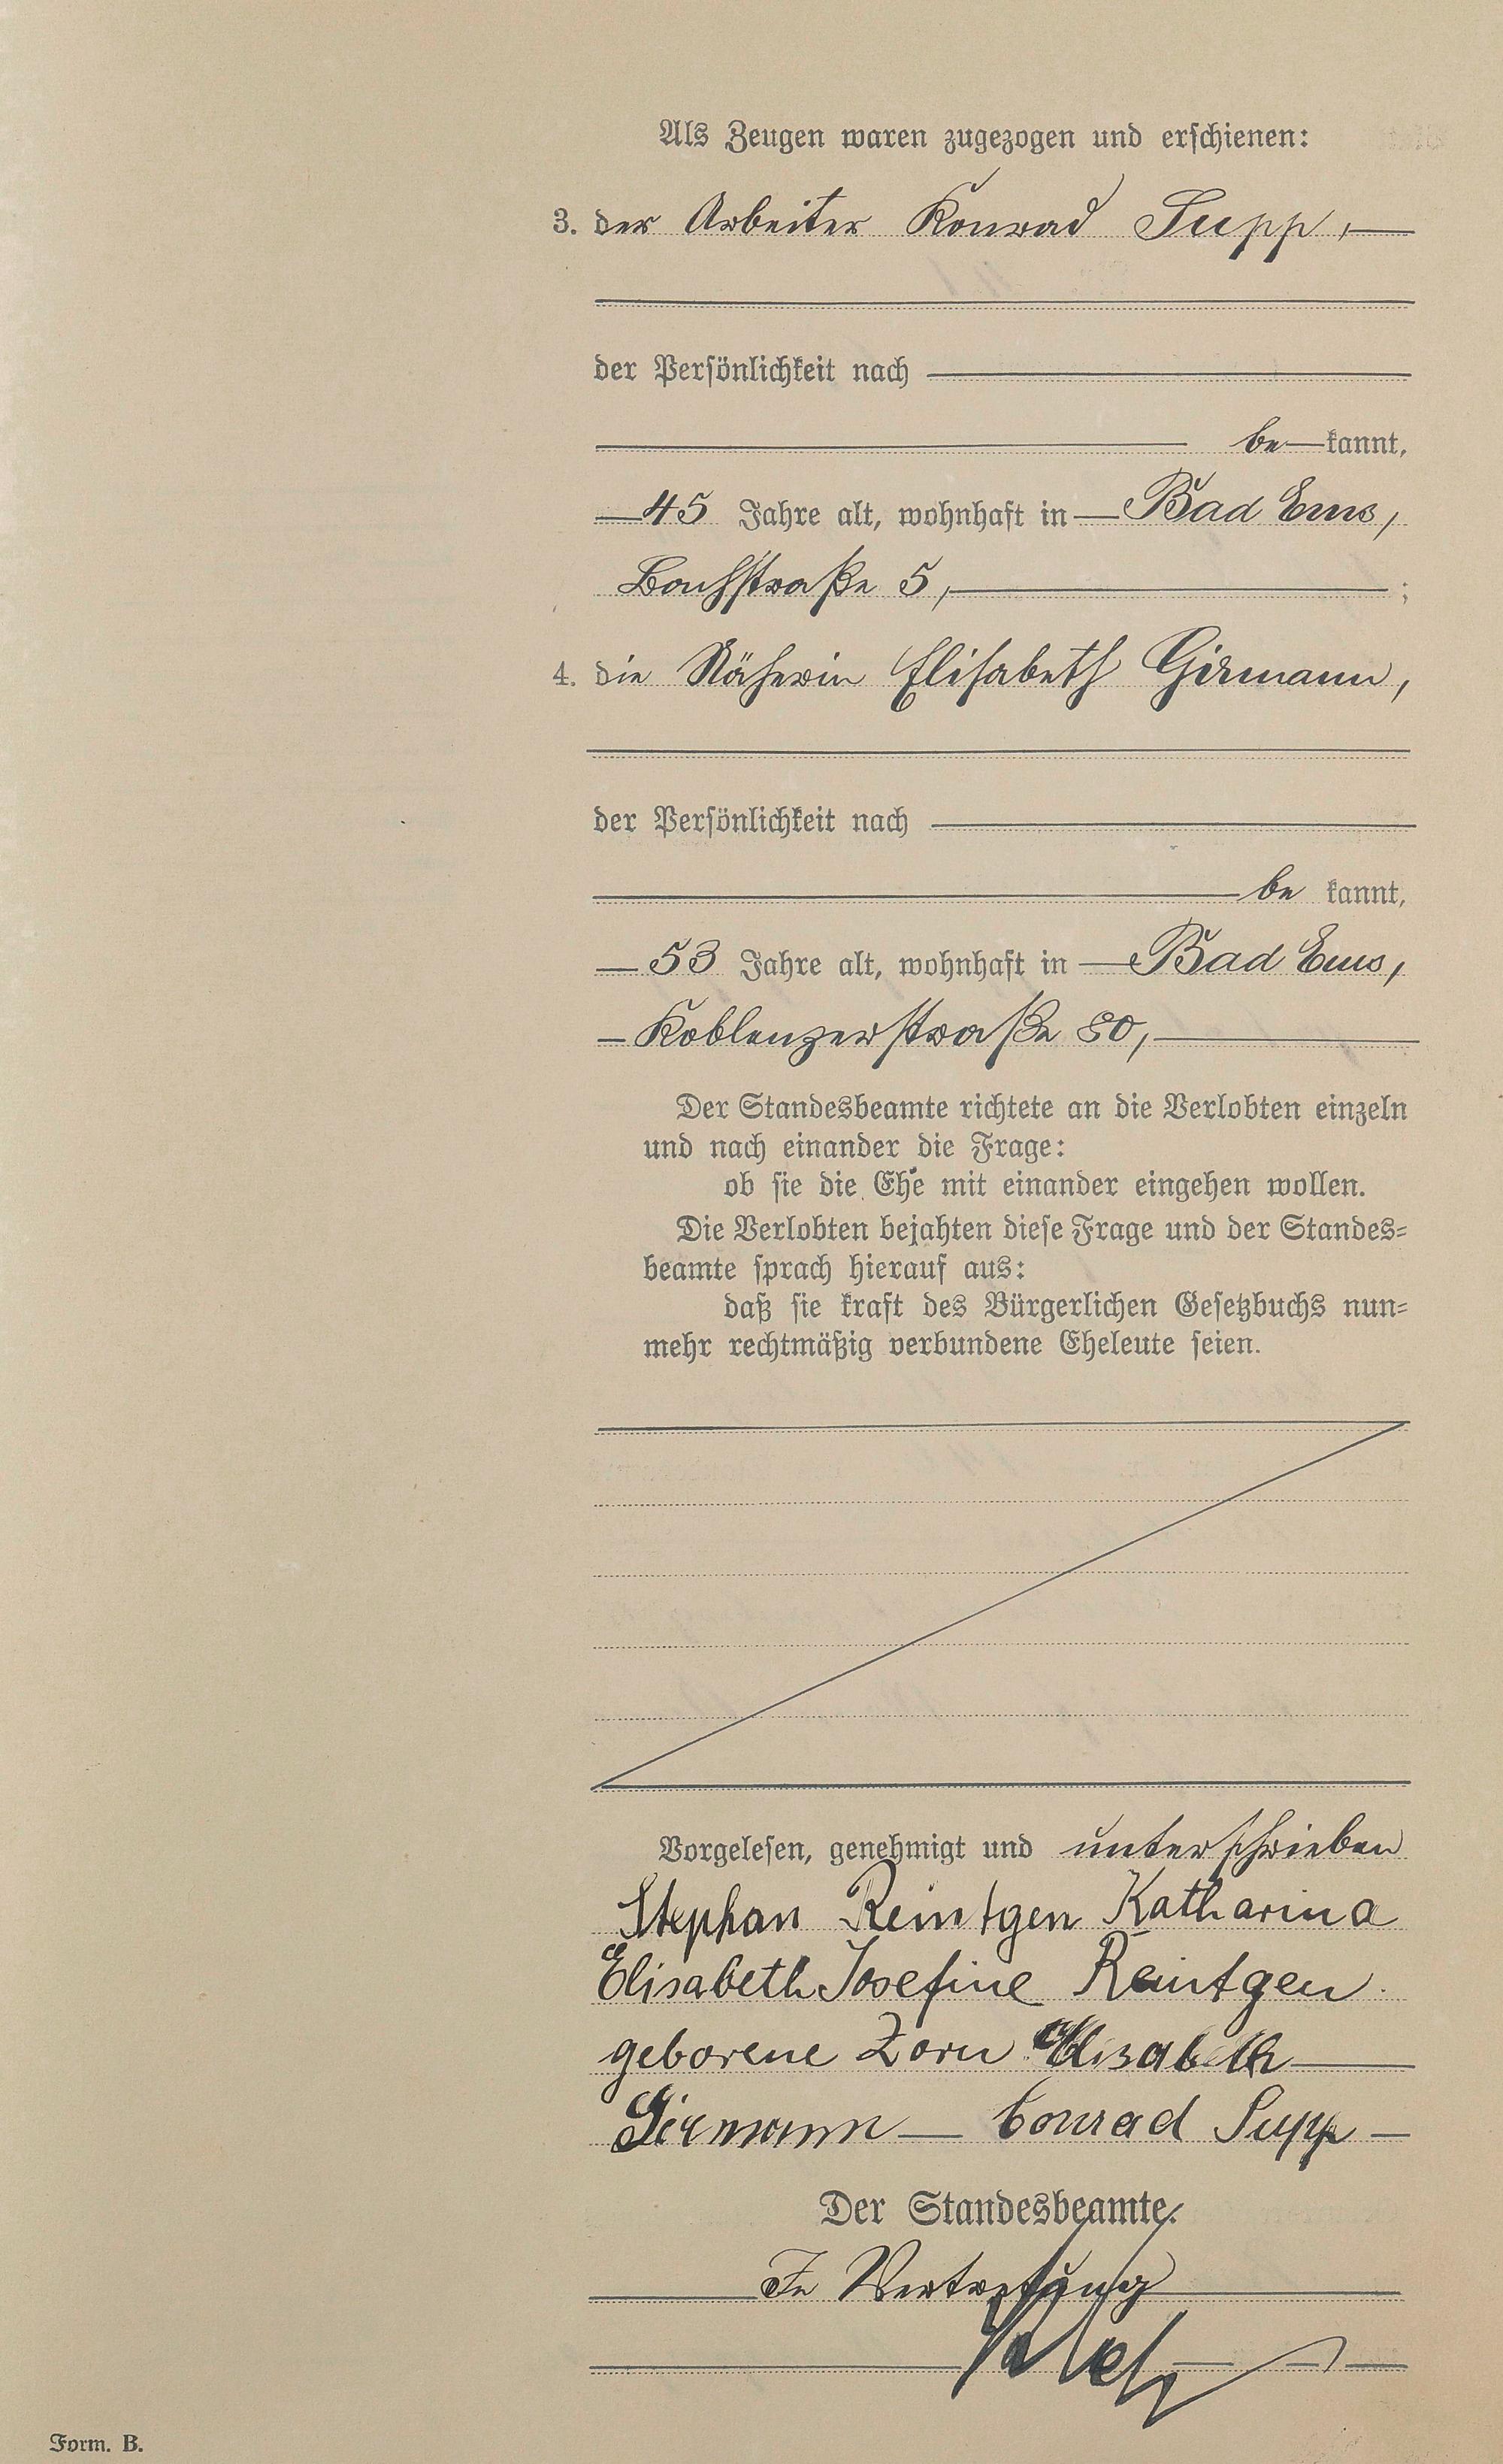 Als Zeugen waren zugezogen und erschienen:
3. der Arbeiter Konrad Supp,
der Persönlichkeit nach
be kannt,
45 Jahre alt, wohnhaft in Bad Ems,
Bachstraße 5, ;
4. die Näherin Elisabeth Girmann,
der Persönlichkeit nach
be kannt,
53 Jahre alt, wohnhaft in Bad Ems,
Koblenzerstraße 80,
Der Standesbeamte richtete an die Verlobten einzeln
und nach einander die Frage:
ob sie die Ehe mit einander eingehen wollen.
Die Verlobten bejahten diese Frage und der Standes=
beamte sprach hierauf aus:
daß sie kraft des Bürgerlichen Gesetzbuchs nun=
mehr rechtmäßig verbundene Eheleute seien.
Vorgelesen, genehmigt und unterschrieben
Stephan Reintgen Katharina
Elisabeth Josefine Reintgen
geborene Zorn Elisabeth
Girmann Conrad Supp
Der Standesbeamte.
In Vertretung
Form. B.